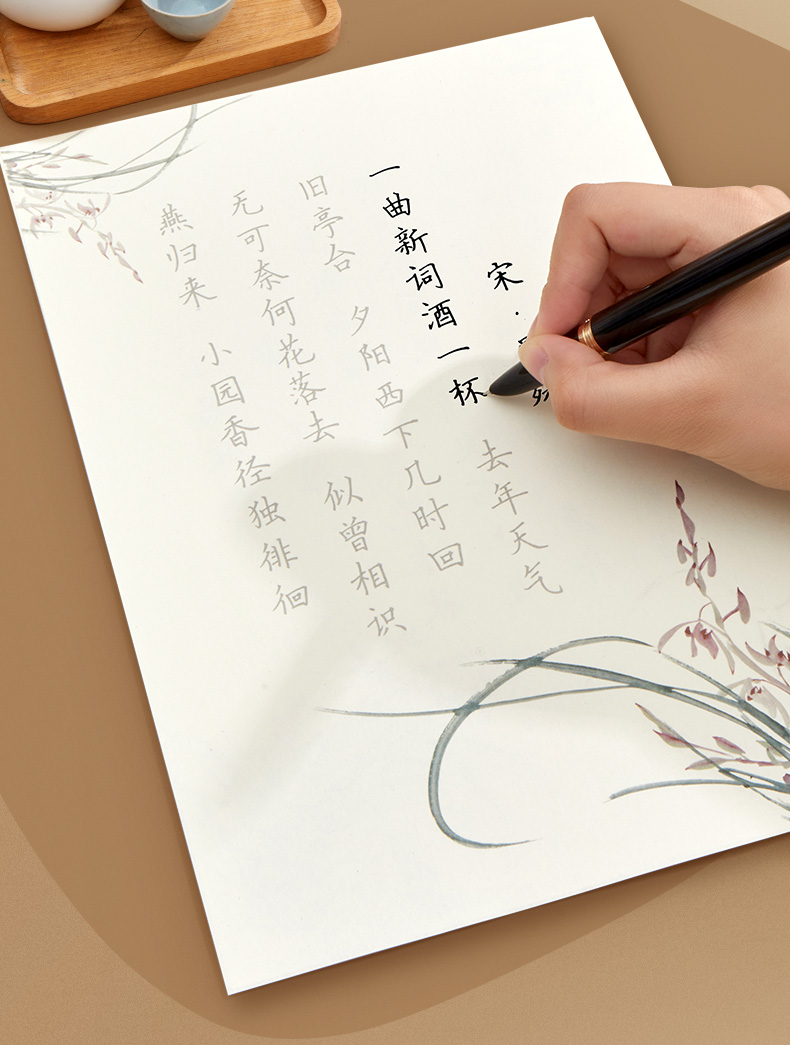 宋·
一曲新词酒一杯 去年天气
旧亭台 夕阳西下几时回
无可奈何花落去 似曾相识
燕归来 小园香径独徘徊